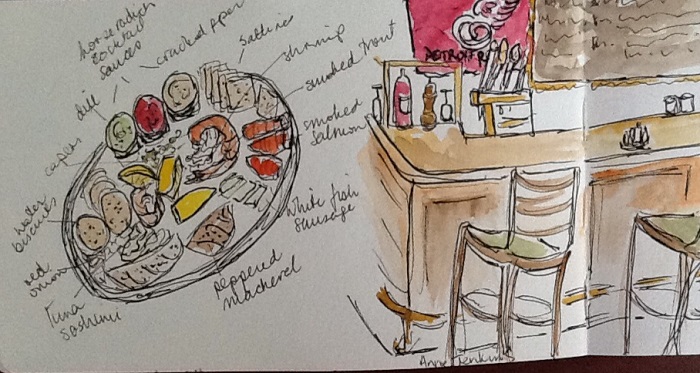 horseradish
cocktail
sauces
cracked
saltines
shrimp
smoked trout
smoked
salmon
dill
capers
water
biscuits
red
onion
Tuna
Sashimi
peppered
mackerel
white fish
sausage
DETROIT
Anne